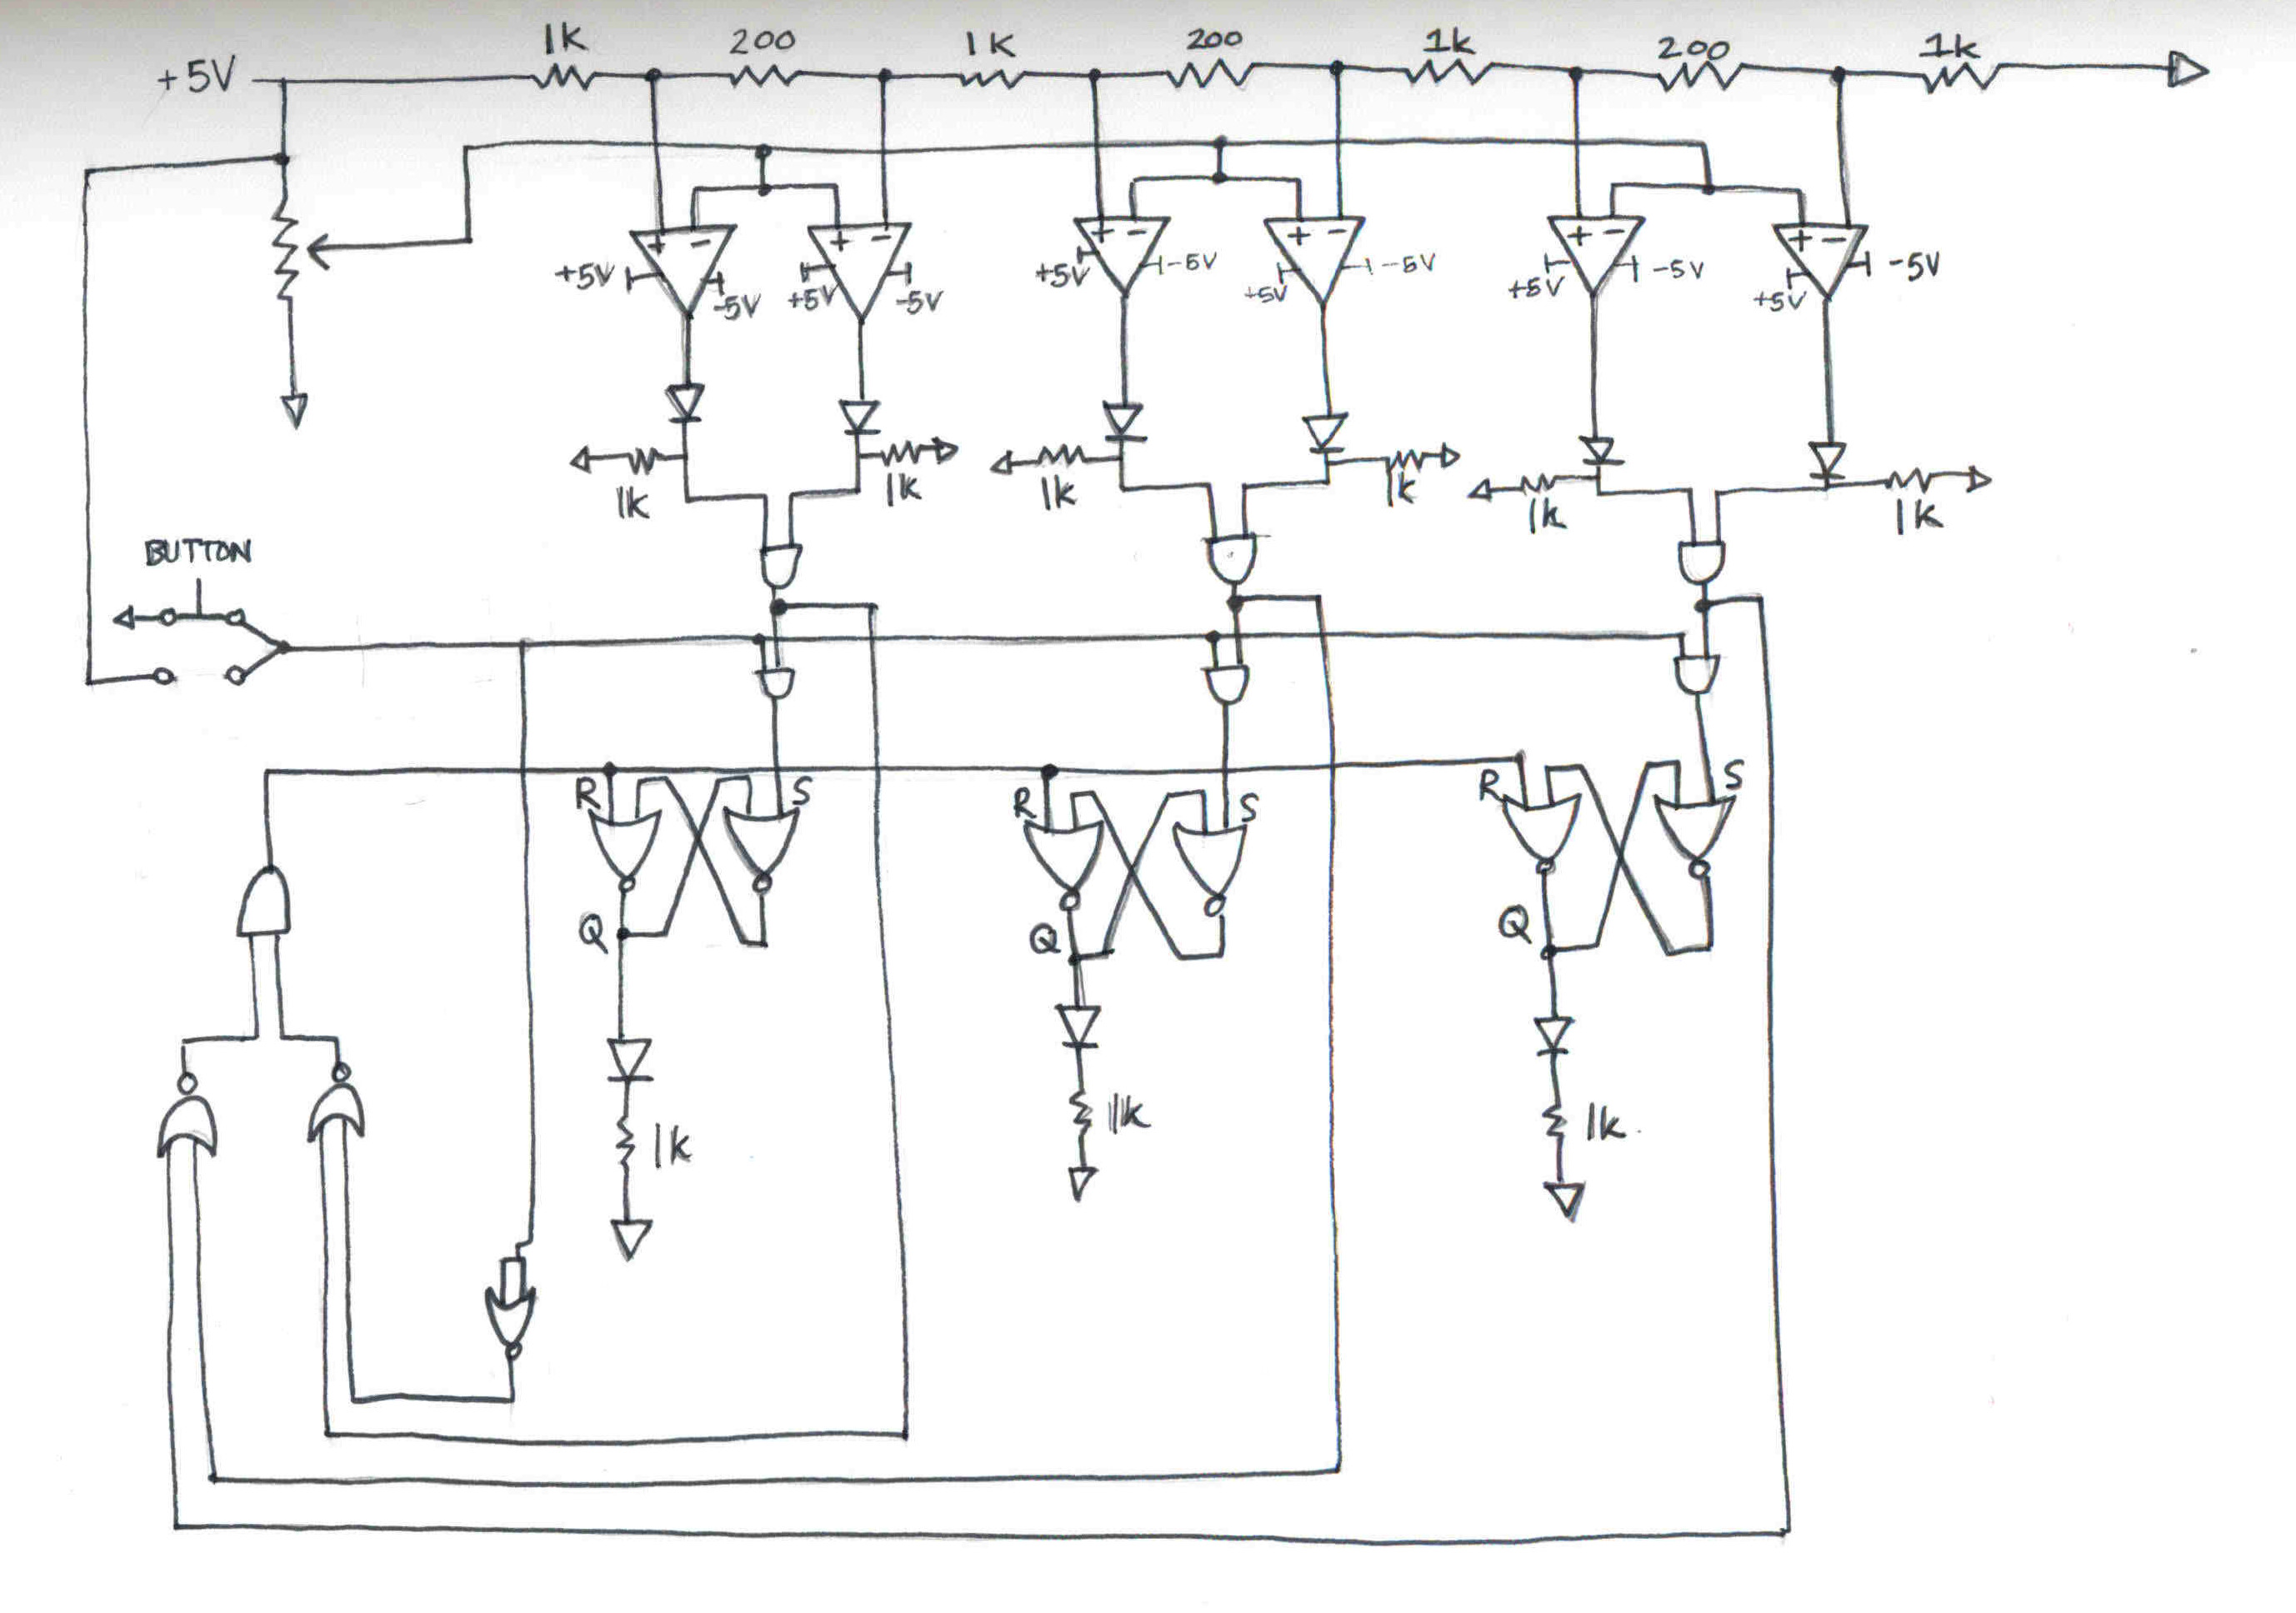 1k 200 1k 200 1k 200 1k
+5V
+ - + - + - + - + - + -
+5V -5V +5V -5V +5V -5V +5V -5V +5V -5V +5V -5V
1k 1k 1k 1k 1k 1k
BUTTON
R S R S R S
Q Q Q
1k 1k 1k